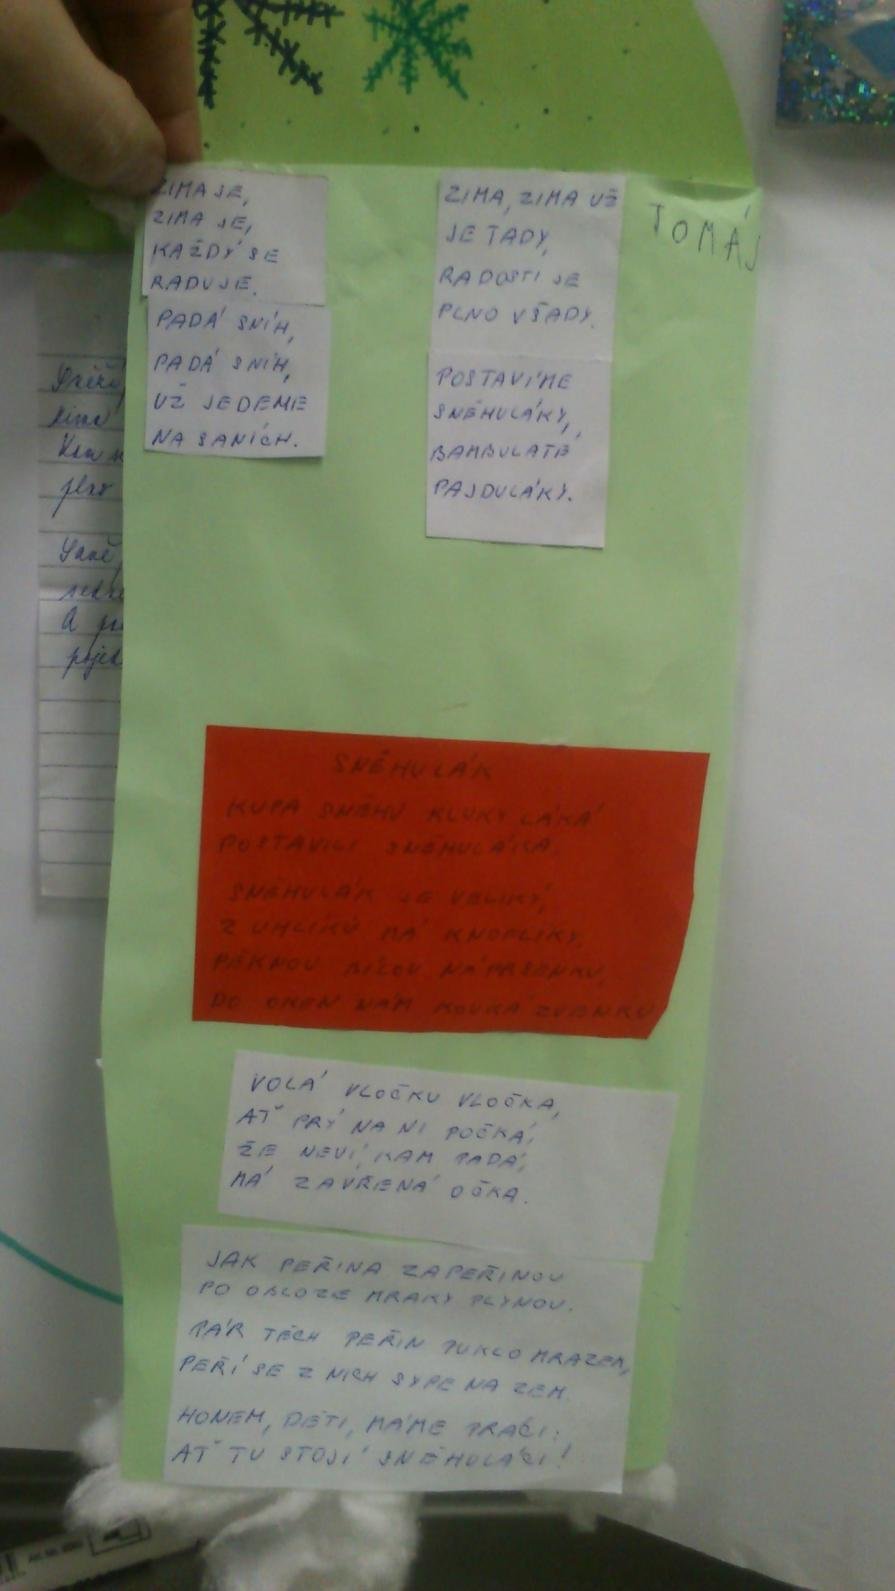 ZIMA JE,
ZIMA JE,
KAŽDÝ SE
RADUJE.
PADÁ SNÍH,
PADÁ SNÍH,
UŽ JEDEME
NA SANÍCH.
ZIMA, ZIMA UŽ
JE TADY,
RADOSTI JE
PLNO VŠADY.
POSTAVÍME
SNĚHULÁKY,
BAMBULATÉ
PAJDULÁKY.
TOMÁŠ
SNĚHULÁK
KUPA SNĚHU KLUKY LÁKÁ
POSTAVILI SNĚHULÁKA.
SNĚHULÁK JE VELIKÝ,
Z UHLÍKŮ MÁ KNOFLÍKY.
PĚKNOU BÍLOU NÁPRSENKU,
DO OKEN NÁM KOUKÁ ZVENKU
VOLÁ VLOČKU VLOČKA,
AŤ PRÝ NA NI POČKÁ,
ŽE NEVÍ, KAM PADÁ,
MÁ ZAVŘENÁ OČKA.
JAK PEŘINA ZA PEŘINOU
PO OBLOZE MRAKY PLYNOU.
PÁR TĚCH PEŘIN PUKLO MRAZEM,
PEŘÍ SE Z NICH SYPE NA ZEM.
HONEM, DĚTI, MÁME PRÁCI:
AŤ TU STOJÍ SNĚHULÁCI!